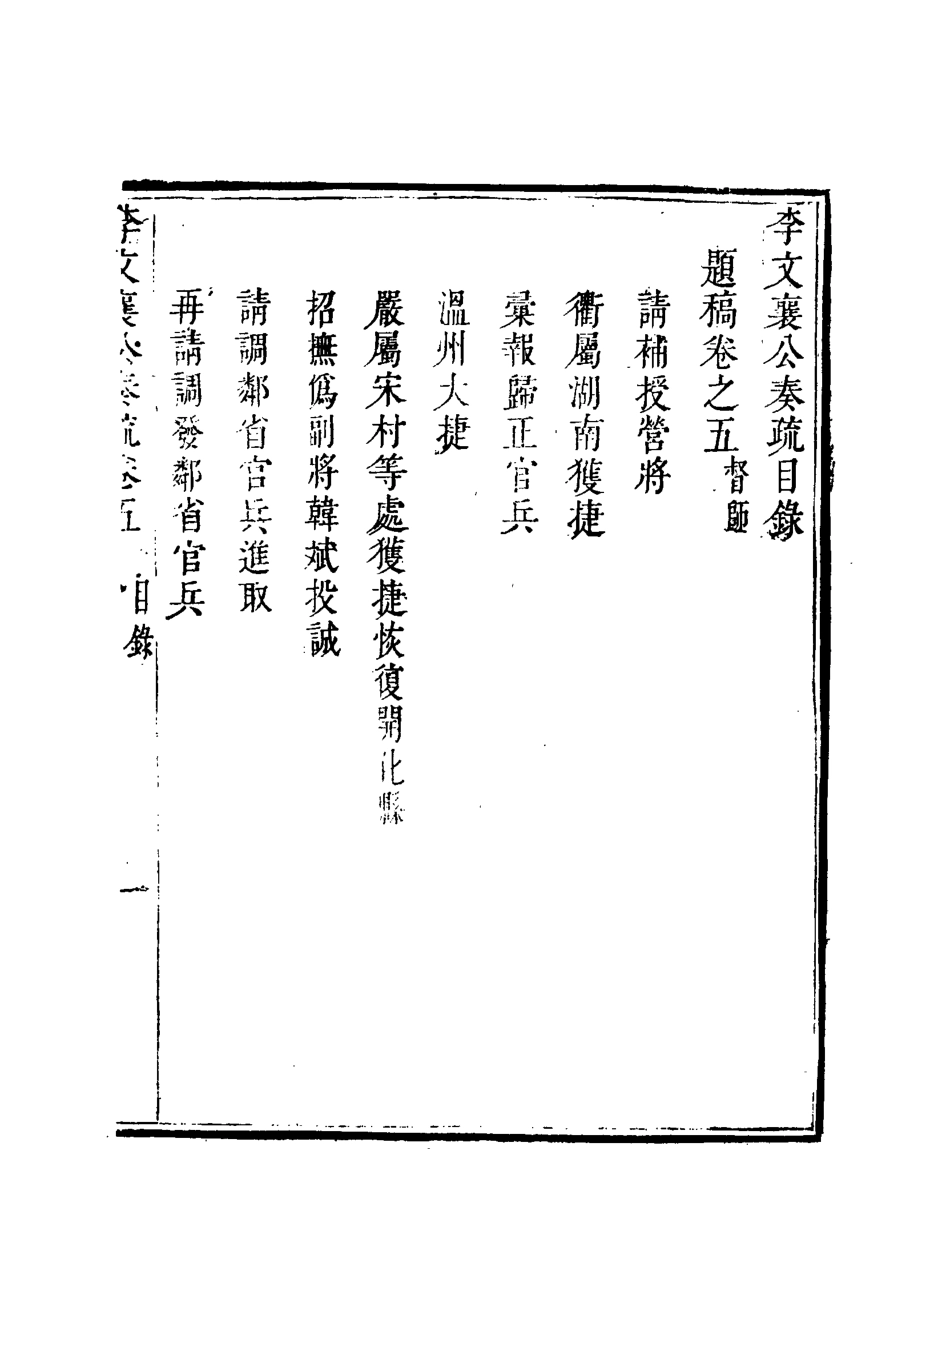 李文襄公奏疏目錄
題稿卷之五督師
請補授營將
衢屬湖南獲捷
彙報歸正官兵
溫州大捷
嚴屬宋村等處獲捷恢復開化縣
招撫僞副將韓斌投誠
請調鄰省官兵進取
再請調發鄰省官兵
李文襄公奏疏卷五 目錄 一